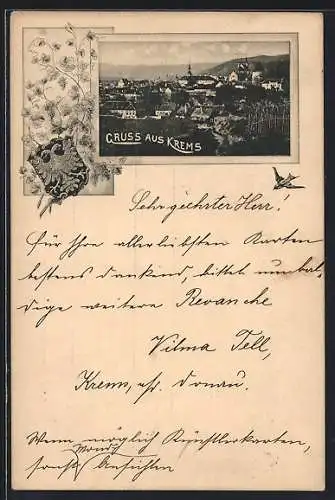 GRUSS AUS KREMS
Sehr geehrter Herr!
Für Ihre allerliebsten Karten
bestens dankend, bittet um bal-
dige weitere Revanche
Vilma Tell,
Krems, a/d. Donau.
Wenn möglich Künstlerkarten,
sonst Mondsch Ansichten